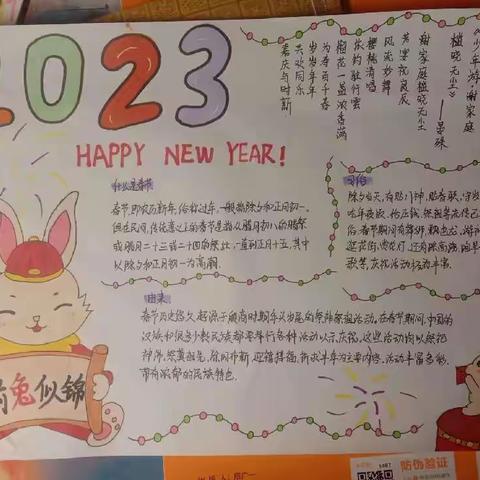 2023
HAPPY NEW YEAR!
《少年游·谢家庭
槛晓无尘》
——晏殊
谢家庭槛晓无尘
芳宴祝良辰
风流妙舞
樱桃清唱
依约驻行云
榴花一盏浓香满
为寿百千春
岁岁年年
共欢同乐
嘉庆与时新
什么是春节
春节,即农历新年,俗称过年,一般指除夕和正月初一。
但在民间,传统意义上的春节是指从腊月初八的腊祭
或腊月二十三或二十四的祭灶,一直到正月十五,其中
以除夕和正月初一为高潮。
习俗
除夕当天,有贴门神,贴春联,守岁
吃年夜饭,
俗,春节期间有舞狮,飘色
逛花街,赏花灯,
歌等,庆祝活动极丰富。
由来
春节历史悠久,起源于殷商时期年头岁尾的祭神祭祖活动。在春节期间,中国的
汉族和很多少数民族都要举行各种活动以示庆祝,这些活动均以祭祀
神佛,祭奠祖先,除旧布新,迎禧接福,祈求丰年为主要内容,活动丰富多彩,
带有浓郁的民族特色。
前兔似锦
防伪验证